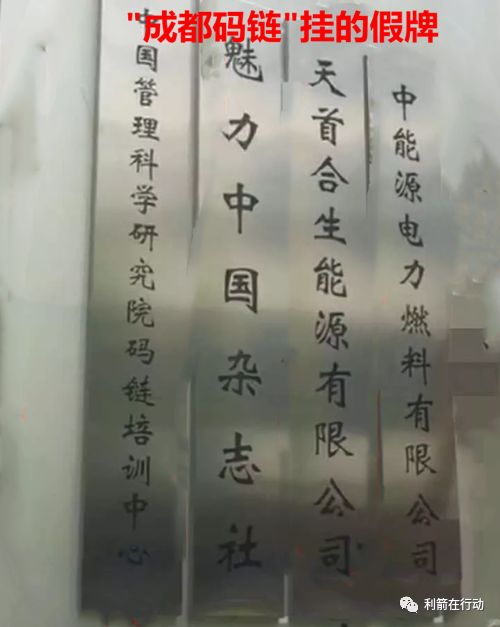 "成都码链"挂的假牌
中国管理科学研究院码链培训中心
魅力中国杂志社
天首合生能源有限公司
中能源电力燃料有限公司
利箭在行动